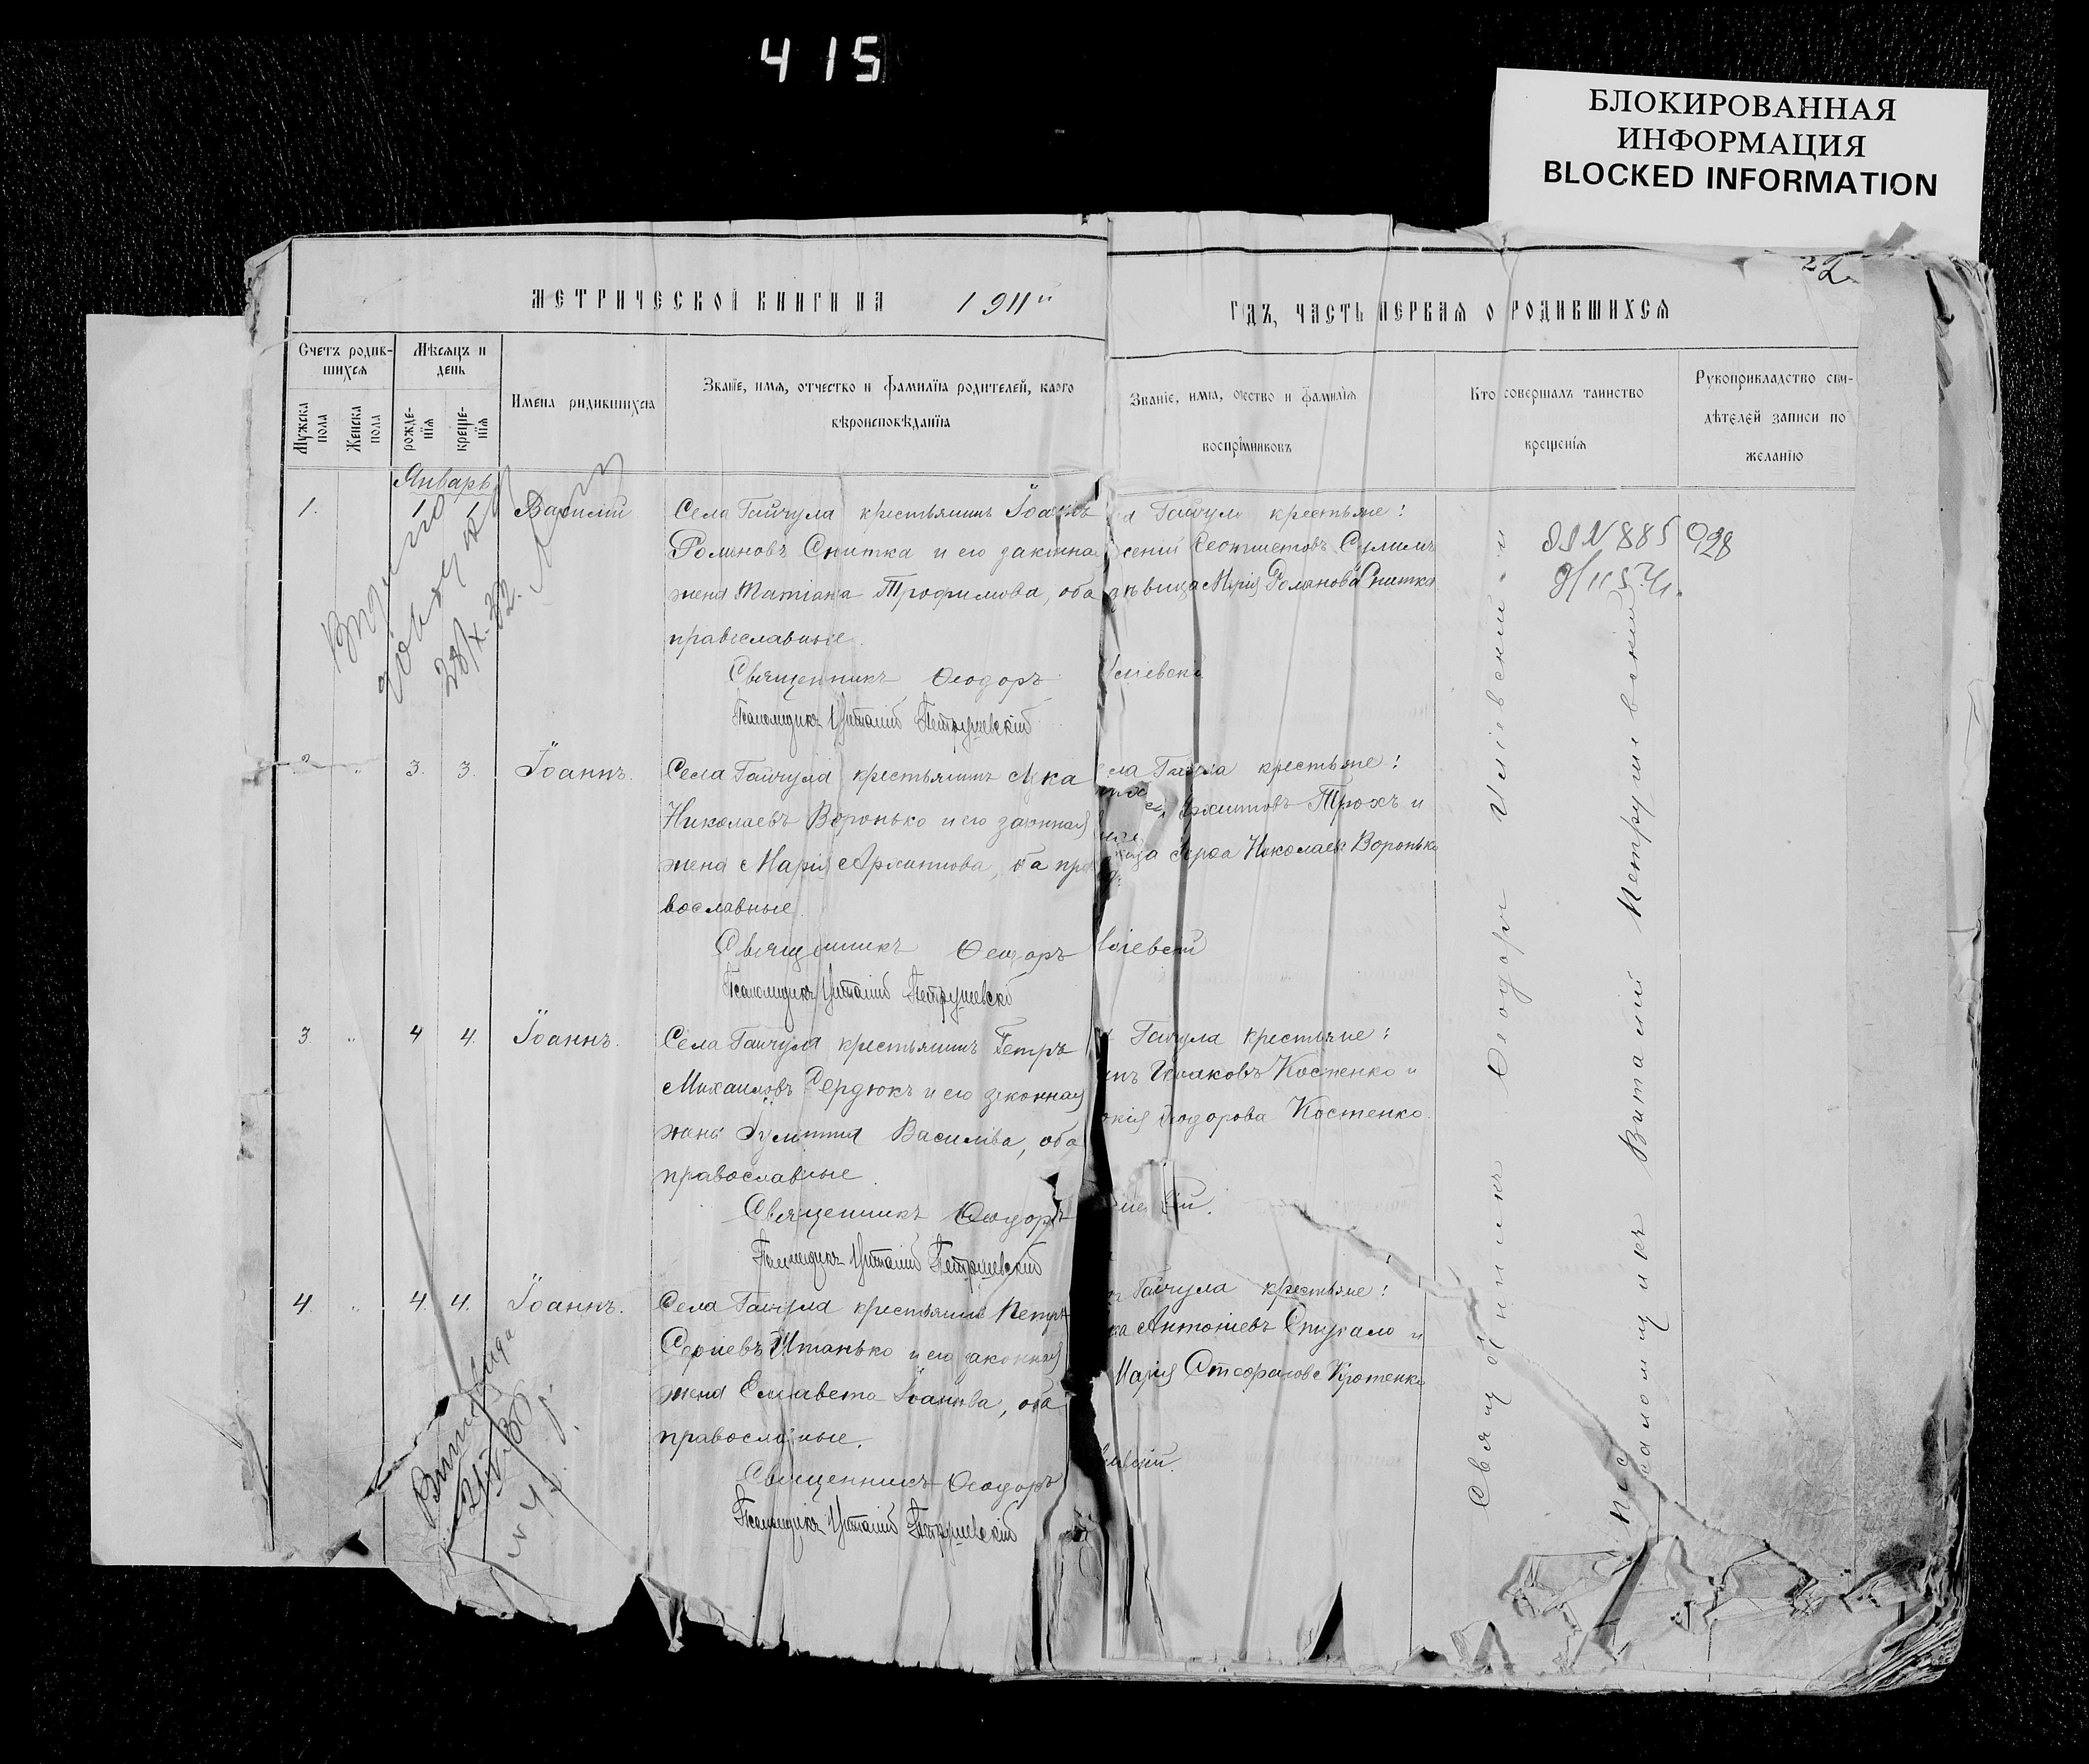 415
БЛОКИРОВАННАЯ
ИНФОРМАЦИЯ
BLOCKED INFORMATION
22
МЕТРИЧЕСКОЙ КНИГИ НА 1911й ГОДЪ, ЧАСТЬ ПЕРВАЯ О РОДИВШИХСЯ
Счетъ родив-
шихся
Мужска пола
Женска пола
Мѣсяцъ и
день
рожде-
нія
креще-
нія
Имена родившихся
Званіе, имя, отчество и фамилія родителей, какого
вѣроисповѣданія
Званіе, имя, отчество и фамилія
воспріемниковъ
Кто совершалъ таинство
крещенія
Рукоприкладство сви-
дѣтелей записи по
желанію
Январь
1. 1 1 Василій
Села Гайчула крестьянинъ Іоаннъ
Романовъ Снитка и его законная
жена Татіана Трофимова, оба
православные.
Священникъ Ѳеодоръ
Псаломщикъ Виталій Петрушевскій
Гайчула крестьяне:
Марія Романова Снитка
28/X-32
2 " 3. 3. Іоаннъ.
Села Гайчула крестьянинъ Лука
Николаевъ Воронько и его законная
жена Марія Архипова, оба пра
вославные.
Священникъ Ѳеодоръ
Псаломщикъ Виталій Петрушевскій
крестьяне:
Трохъ и
Николаевъ Воронько
3. " 4 4. Іоаннъ.
Села Гайчула крестьянинъ Петръ
Михаиловъ Сердюкъ и его законная
жена Іулитта Васильева, оба
православные.
Священникъ Ѳеодоръ
Псаломщикъ Виталій Петрушевскій
Гайчула крестьяне:
Костенко и
Ѳеодорова Костенко.
4. " 4. 4. Іоаннъ.
Села Гайчула крестьянинъ Петръ
Сергіевъ Штанько и его законная
жена Елисавета Іоаннова, оба
православные.
Священникъ Ѳеодоръ
Псаломщикъ Виталій Петрушевскій
Гайчула крестьяне:
Антоніевъ и
Марія Кротенко
Священникъ Ѳеодоръ
Псаломщикъ Виталій Петрушевскій